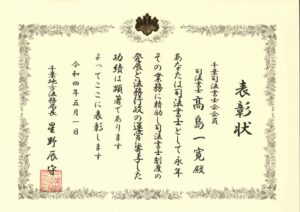 表彰状
千葉司法書士会会員
司法書士 髙島一寛殿
あなたは司法書士として永年
その業務に精励し司法書士制度の
発展と法務行政の運営に寄与した
功績は顕著であります
よってここに表彰します
令和四年五月一日
千葉地方法務局長 星野辰守